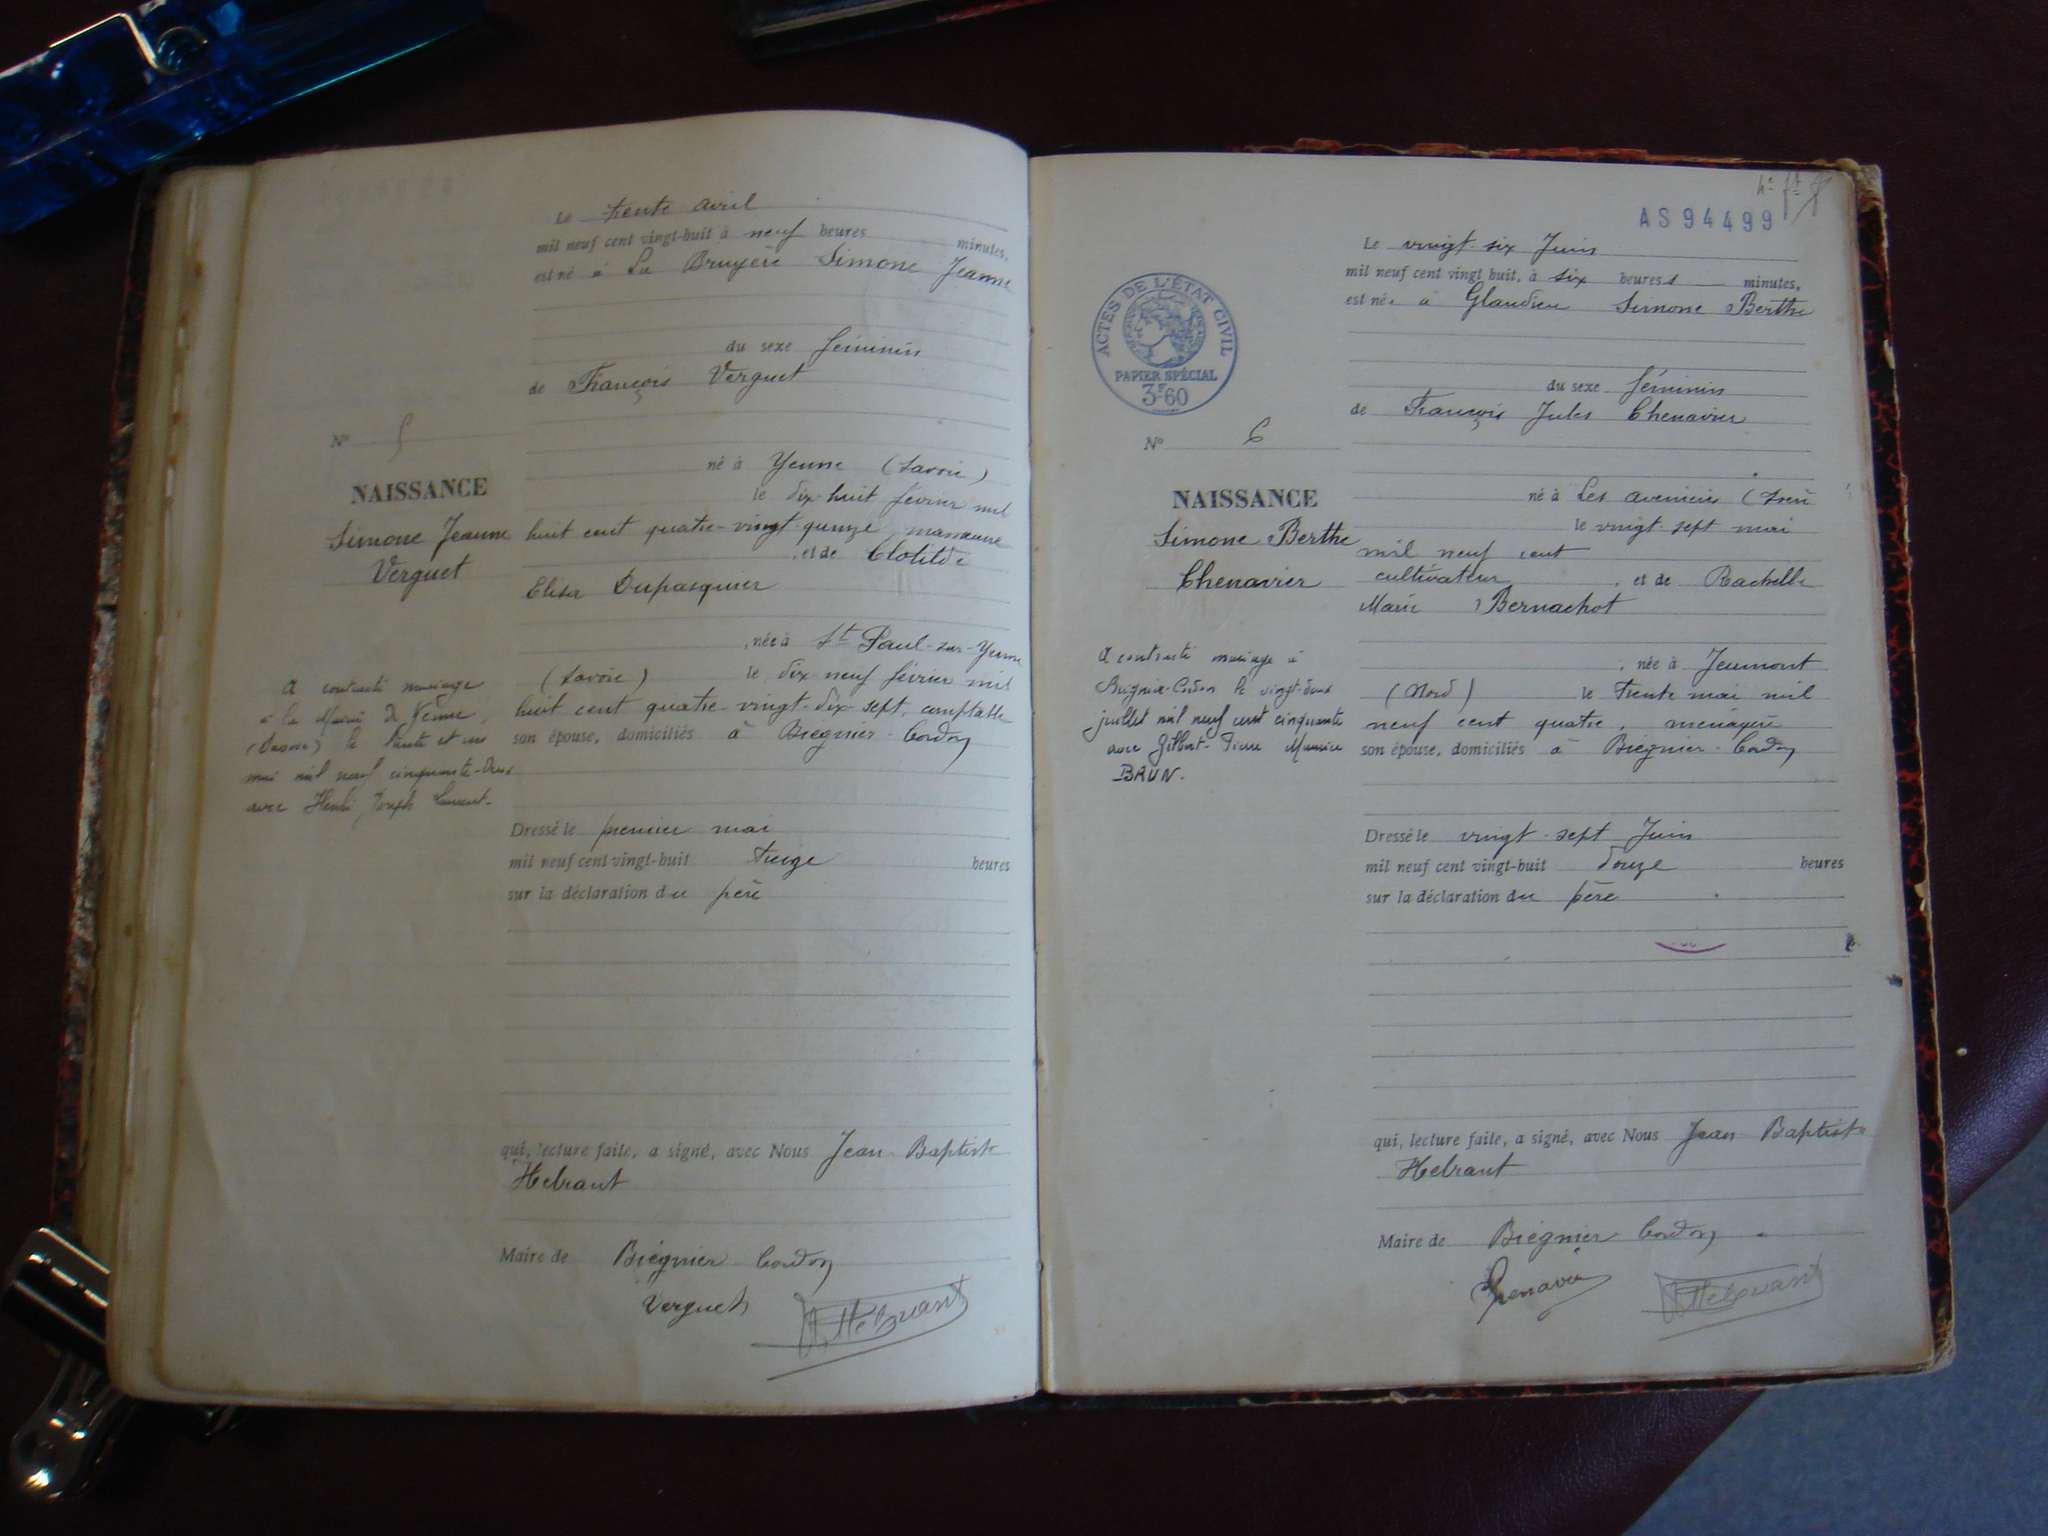 Le trente avril
mil neuf cent vingt-huit à neuf heures minutes,
est né à La Bruyère Simone Jeanne
du sexe féminin
de François Verguet
N° 5
né à Yenne (Savoie)
NAISSANCE
le dix-huit février mil
Simone Jeanne
huit cent quatre-vingt-quinze, manœuvre
Verguet
, et de Clotilde
Elisa Dupasquier
, née à St Paul-sur-Yenne
(Savoie) le dix-neuf février mil
huit cent quatre-vingt-dix-sept, comptable
son épouse, domiciliés à Brégnier-Cordon
A contracté mariage
à la Mairie de Yenne,
(Savoie) le trente et un
mai mil neuf cinquante-deux
avec Henri Joseph
Dressé le premier mai
mil neuf cent vingt-huit treize heures
sur la déclaration du père
qui, lecture faite, a signé, avec Nous Jean Baptiste
Hebraut
Maire de Brégnier Cordon
Verguet
AS94499
Le vingt-six Juin
mil neuf cent vingt huit, à six heures minutes,
est née à Glandieu Simone Berthe
ACTES DE L'ÉTAT CIVIL
PAPIER SPÉCIAL
3F60
du sexe féminin
de François Jules Chenavier
N° 6
né à Les avenières (Isère
NAISSANCE
le vingt-sept mai
Simone Berthe
mil neuf cent
Chenavier
cultivateur, et de Rachelle
Marie Bernachot
, née à Jeumont
(Nord) le trente mai mil
neuf cent quatre, ménagère
son épouse, domiciliés à Brégnier-Cordon
A contracté mariage à
Brégnier-Cordon le vingt-deux
juillet mil neuf cent cinquante
avec Gilbert-Pierre Maurice
BRUN.
Dressé le vingt-sept Juin
mil neuf cent vingt-huit douze heures
sur la déclaration du père
qui, lecture faite, a signé, avec Nous Jean Baptiste
Hebraut
Maire de Brégnier Cordon
Chenavier